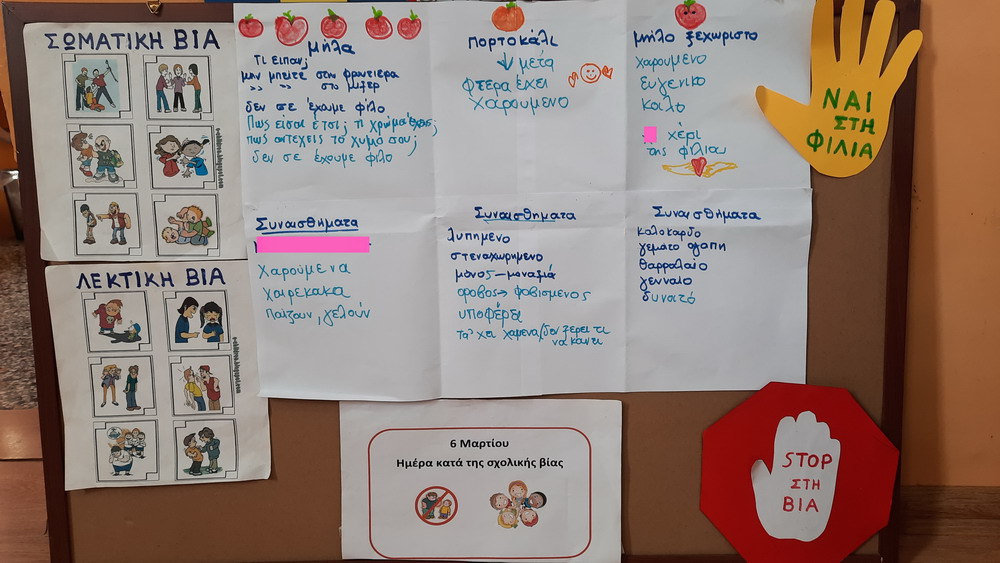 ΣΩΜΑΤΙΚΗ ΒΙΑ
ΛΕΚΤΙΚΗ ΒΙΑ
μήλα
Τι είπαν;
μην μπείτε στην φρουτιέρα
" " στο μίξερ
δεν σε έχουμε φίλο
Πως είσαι έτσι; τι χρώμα έχεις;
πως αντέχεις το χυμό σου;
δεν σε έχουμε φίλο
Συναισθήματα
χαρούμενα
χαιρέκακα
παίζουν, γελούν
πορτοκάλι
μετά
φτερά έχει
χαρούμενο
Συναισθήματα
λυπημένο
στεναχωρημένο
μόνος - μοναξιά
φόβος → φοβισμένος
υποφέρει
τα' χει χαμένα/δεν ξέρει τι
να κάνει
μήλο ξεχωριστό
χαρούμενο
ευγενικό
καλό
χέρι
της φιλίας
Συναισθήματα
καλόκαρδο
γεμάτο αγάπη
θαρραλαίο
γενναίο
δυνατό
ΝΑΙ
ΣΤΗ
ΦΙΛΙΑ
6 Μαρτίου
Ημέρα κατά της σχολικής βίας
STOP
ΣΤΗ
ΒΙΑ